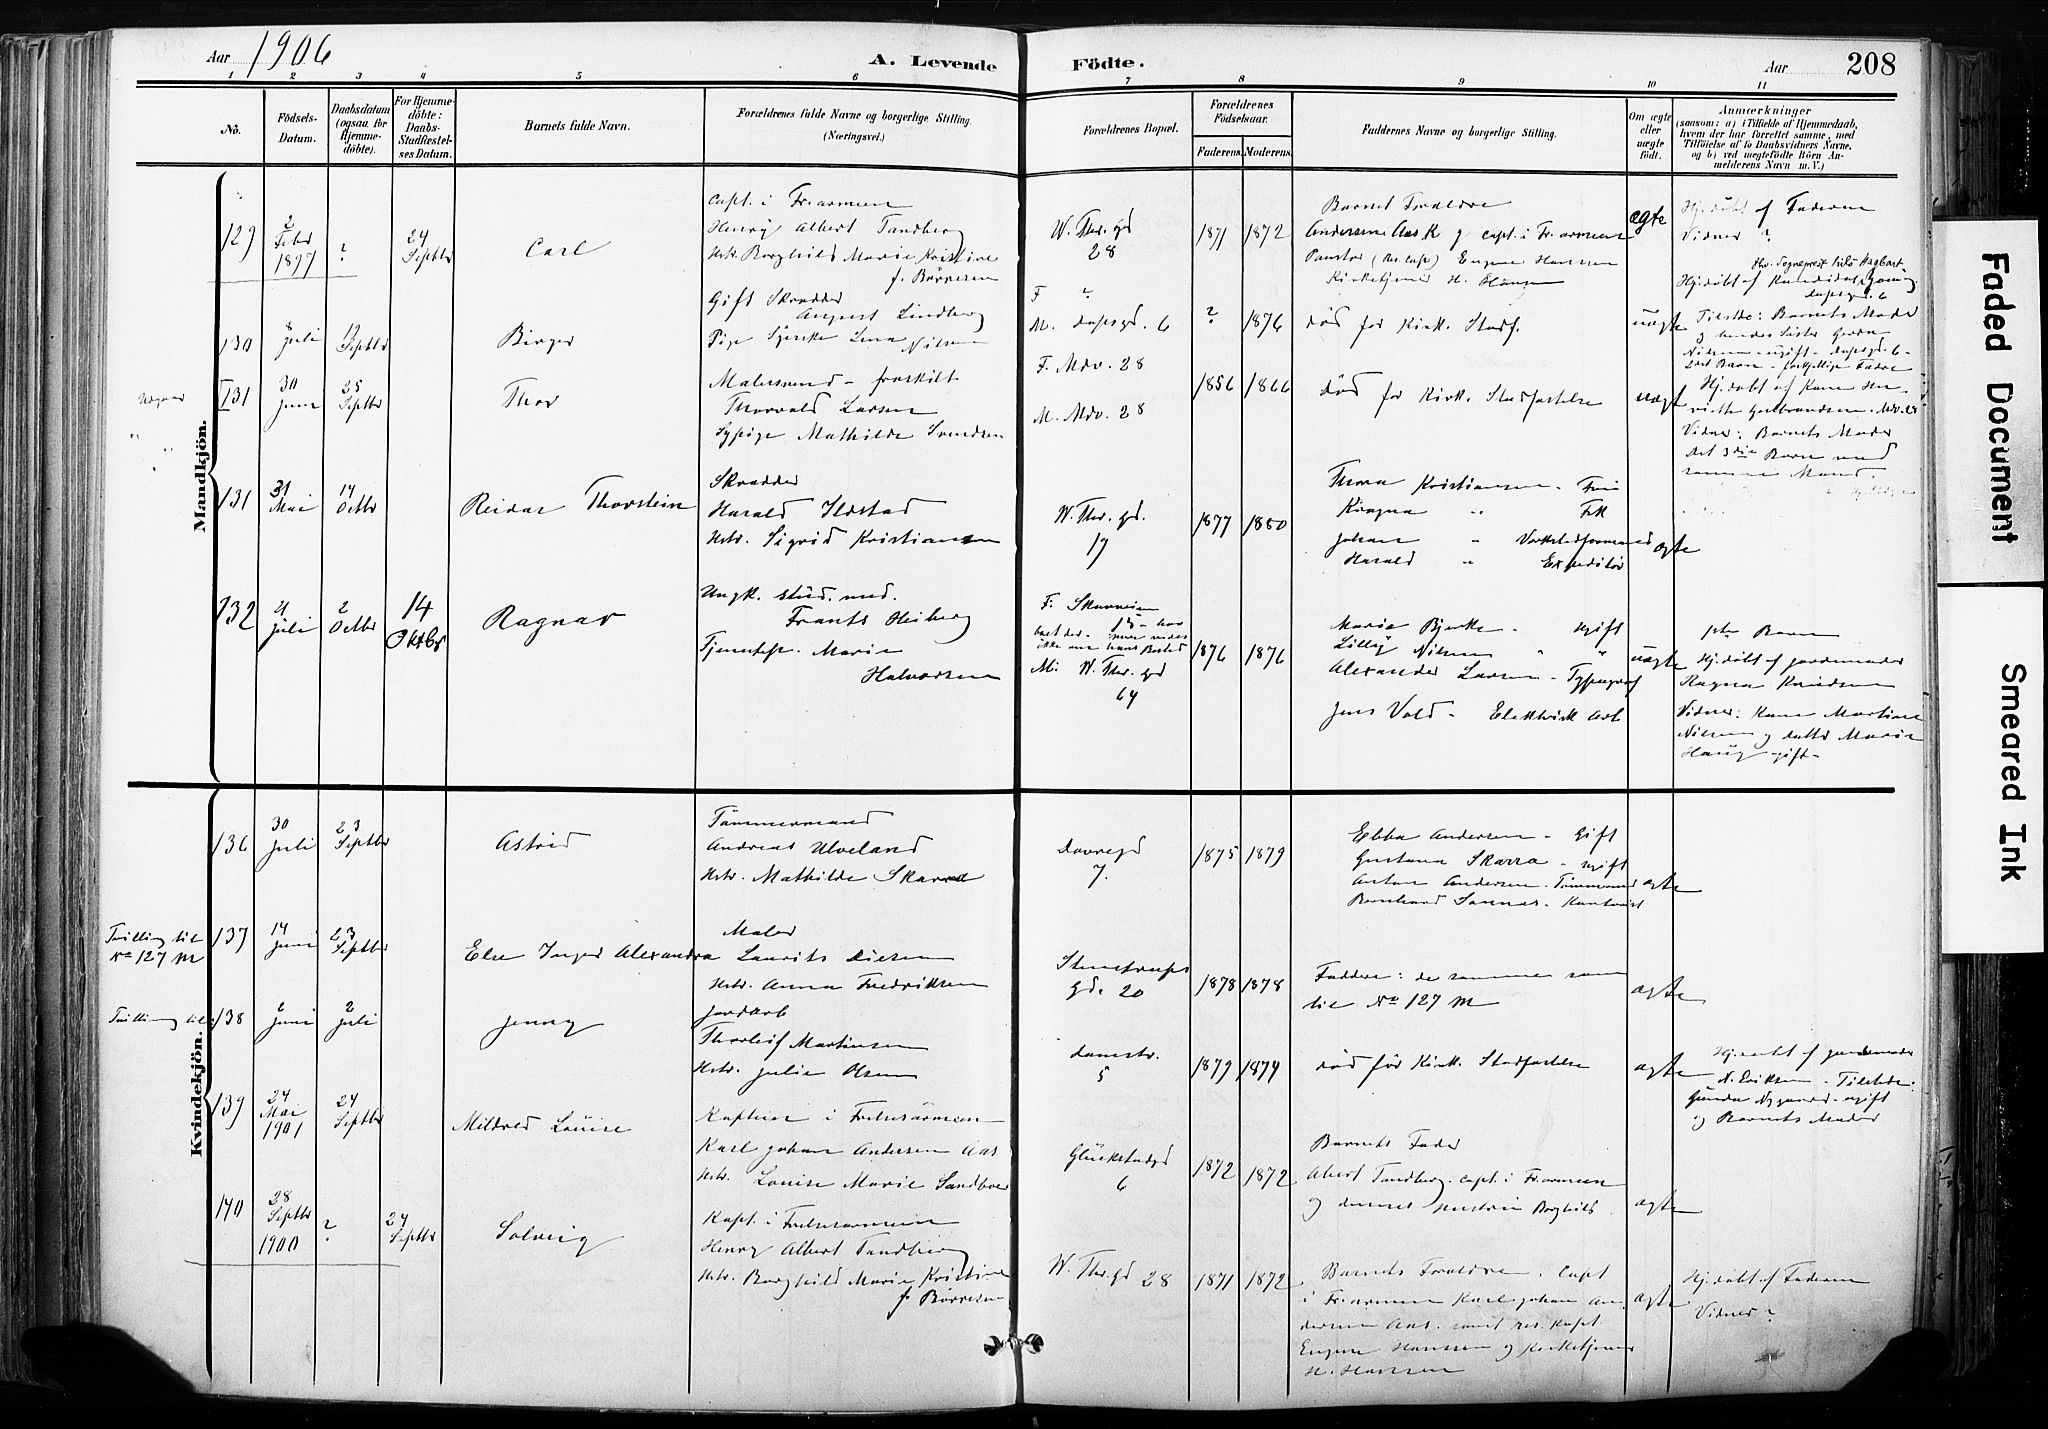 Aar 1906
A. Levende Födte.
Aar
208
1 2 3 4 5 6 7 8 9 10 11
No.
Födsels-Datum.
Daabsdatum (ogsaa for Hjemme-döbte).
For Hjemme-döbte: Daabs-Stadfæstel-ses Datum.
Barnets fulde Navn.
Forældrenes fulde Navne og borgerlige Stilling. (Næringsvei.)
Forældrenes Bopæl.
Forældrenes Födselsaar.
Faderens. Moderens.
Faddernes Navne og borgerlige Stilling.
Om ægte eller uægte födt.
Anmærkninger
(saasom: a) i Tilfælde af Hjemmedaab,
hvem der har forrettet samme, med
Tilföielse af to Daabsvidners Navne,
og b) ved uægtefödte Börn An-
melderens Navn m.V.)
Mandkjön.
129
2 Febr 1897
?
24 Septbr
Carl
Capt. i Fr.armeen
Henry Albert Tandberg
Hstr. Borghild Marie Kristine
f. Börresen
W. Thr. gd
28
1871 1872
Barnets Forældre
Andersen Aas K og Capt. i Fr.armeen
Eugene Hanssen
Kirketjener H. Hansen
ægte
Hj.döbt af Faderen
Vidner ?
130
8 Juli
12 Septbr
Birger
Gift Skrædder
August Lindberg
Pige Lina Nilsen
F ?
M. Dapsgd. 6
? 1876
Död för Kirk. Stadf.
uægte
Hj.döbt af Kandidat
Dapsgd. 6
Tilstede: Barnets Moder
og hendes Söster Gerda
Nilsen - ugift - Dapsgd. 6 -
131
30 Juni
25 Septbr
Thor
Malersvend - fraskilt
Thorvald Larsen
Sypige Mathilde Svendsen
F. Mdv. 28
M. Mdv. 28
1856 1866
Död för Kirk. Stadfæstelse
uægt
Hj.döbt af Kone Hen-
riette Gulbrandsen. Mdv. 28
Vidner: Barnets Moder
Det 3die Barn med
samme Mand
131
31 Mai
14 Octbr
Reidar Thorstein
Skrædder
Harald Ildstad
Hstr. Sigrid Kristiansen
W. Thr. gd.
17
1877 1880
Thora Kristiansen - Frue
Ragna " Frk
Johan " Værkstedformand
Harald " Expeditör
ægte
132
21 Juli
2 Octbr
14 Oktbr
Ragnar
Ungk. stud. med.
Frants Heiberg
Tjenestep. Marie
Halvorsen
F. Skovveien
M: W. Thr. gd
64
1876 1876
Maria Bjerke - Ugift
Lilly Nilsen " "
Alexander Larsen - Typograf
Jens Vold - Elektrisk Arb
uægte
Barn
Hj.döbt af Jordemoder
Ragna Knudsen
Vidner: Kone Martine
Nilsen og datter Marie
Haug gift -
Kvindekjön.
136
30 Juli
23 Septbr
Astrid
Tömmermand
Andreas Ulveland
Hstr. Mathilde Skarra
Dovregd
7.
1875 1879
Ebba Andersen - Gift
Gustava Skarra - ugift
Anton Andersen - Tömmermand
Bernhard Sannes - Kontorist
ægte
Tvilling til
No 127 M
137
14 Juni
23 Septbr
Else Inger Alexandra
Maler
Laurits Diesen
Hstr. Anna Fredriksen
Stenstrups
Gd. 20
1878 1878
Faddere: de samme som
til No 127 M
ægte
Tvilling til
138
2 Juni
2 Juli
Jenny
Jordarb
Thorleif Martinsen
Hstr. Julie Olsen
Damstr.
5
1879 1874
Död för Kirk. Stadfæstelse
ægte
Hj.döbt af Jordemoder
N. Eriksen - Tilstede:
Gunda Nygaard - ugift
og Barnets Moder
139
24 Mai 1901
24 Septbr
Mildred Louise
Kaptein i Frelsesarmeen
Karl Johan Andersen Aas
Hstr. Louise Marie Sandboe
Glückstadgd
6
1872 1872
Barnets Fader
Albert Tandberg. Capt. i Fr.armeen
og dennes Hustru Borghild.
ægte
140
28 Septbr 1900
?
24 Septbr
Solveig
Kapt. i Frelsesarmeen
Henry Albert Tandberg
Hstr. Borghild Marie Kristine
f. Börresen
W. Thr. gd 28
1871 1872
Barnets Forældre. Capt
i Fr.armeen Karl Johan An-
dersen Aas. samt res. Kapt
Eugene Hanssen og Kirketjener
H. Hanssen
ægte
Hj.döbt af Faderen
Vidner ?
Faded Document
Smeared Ink